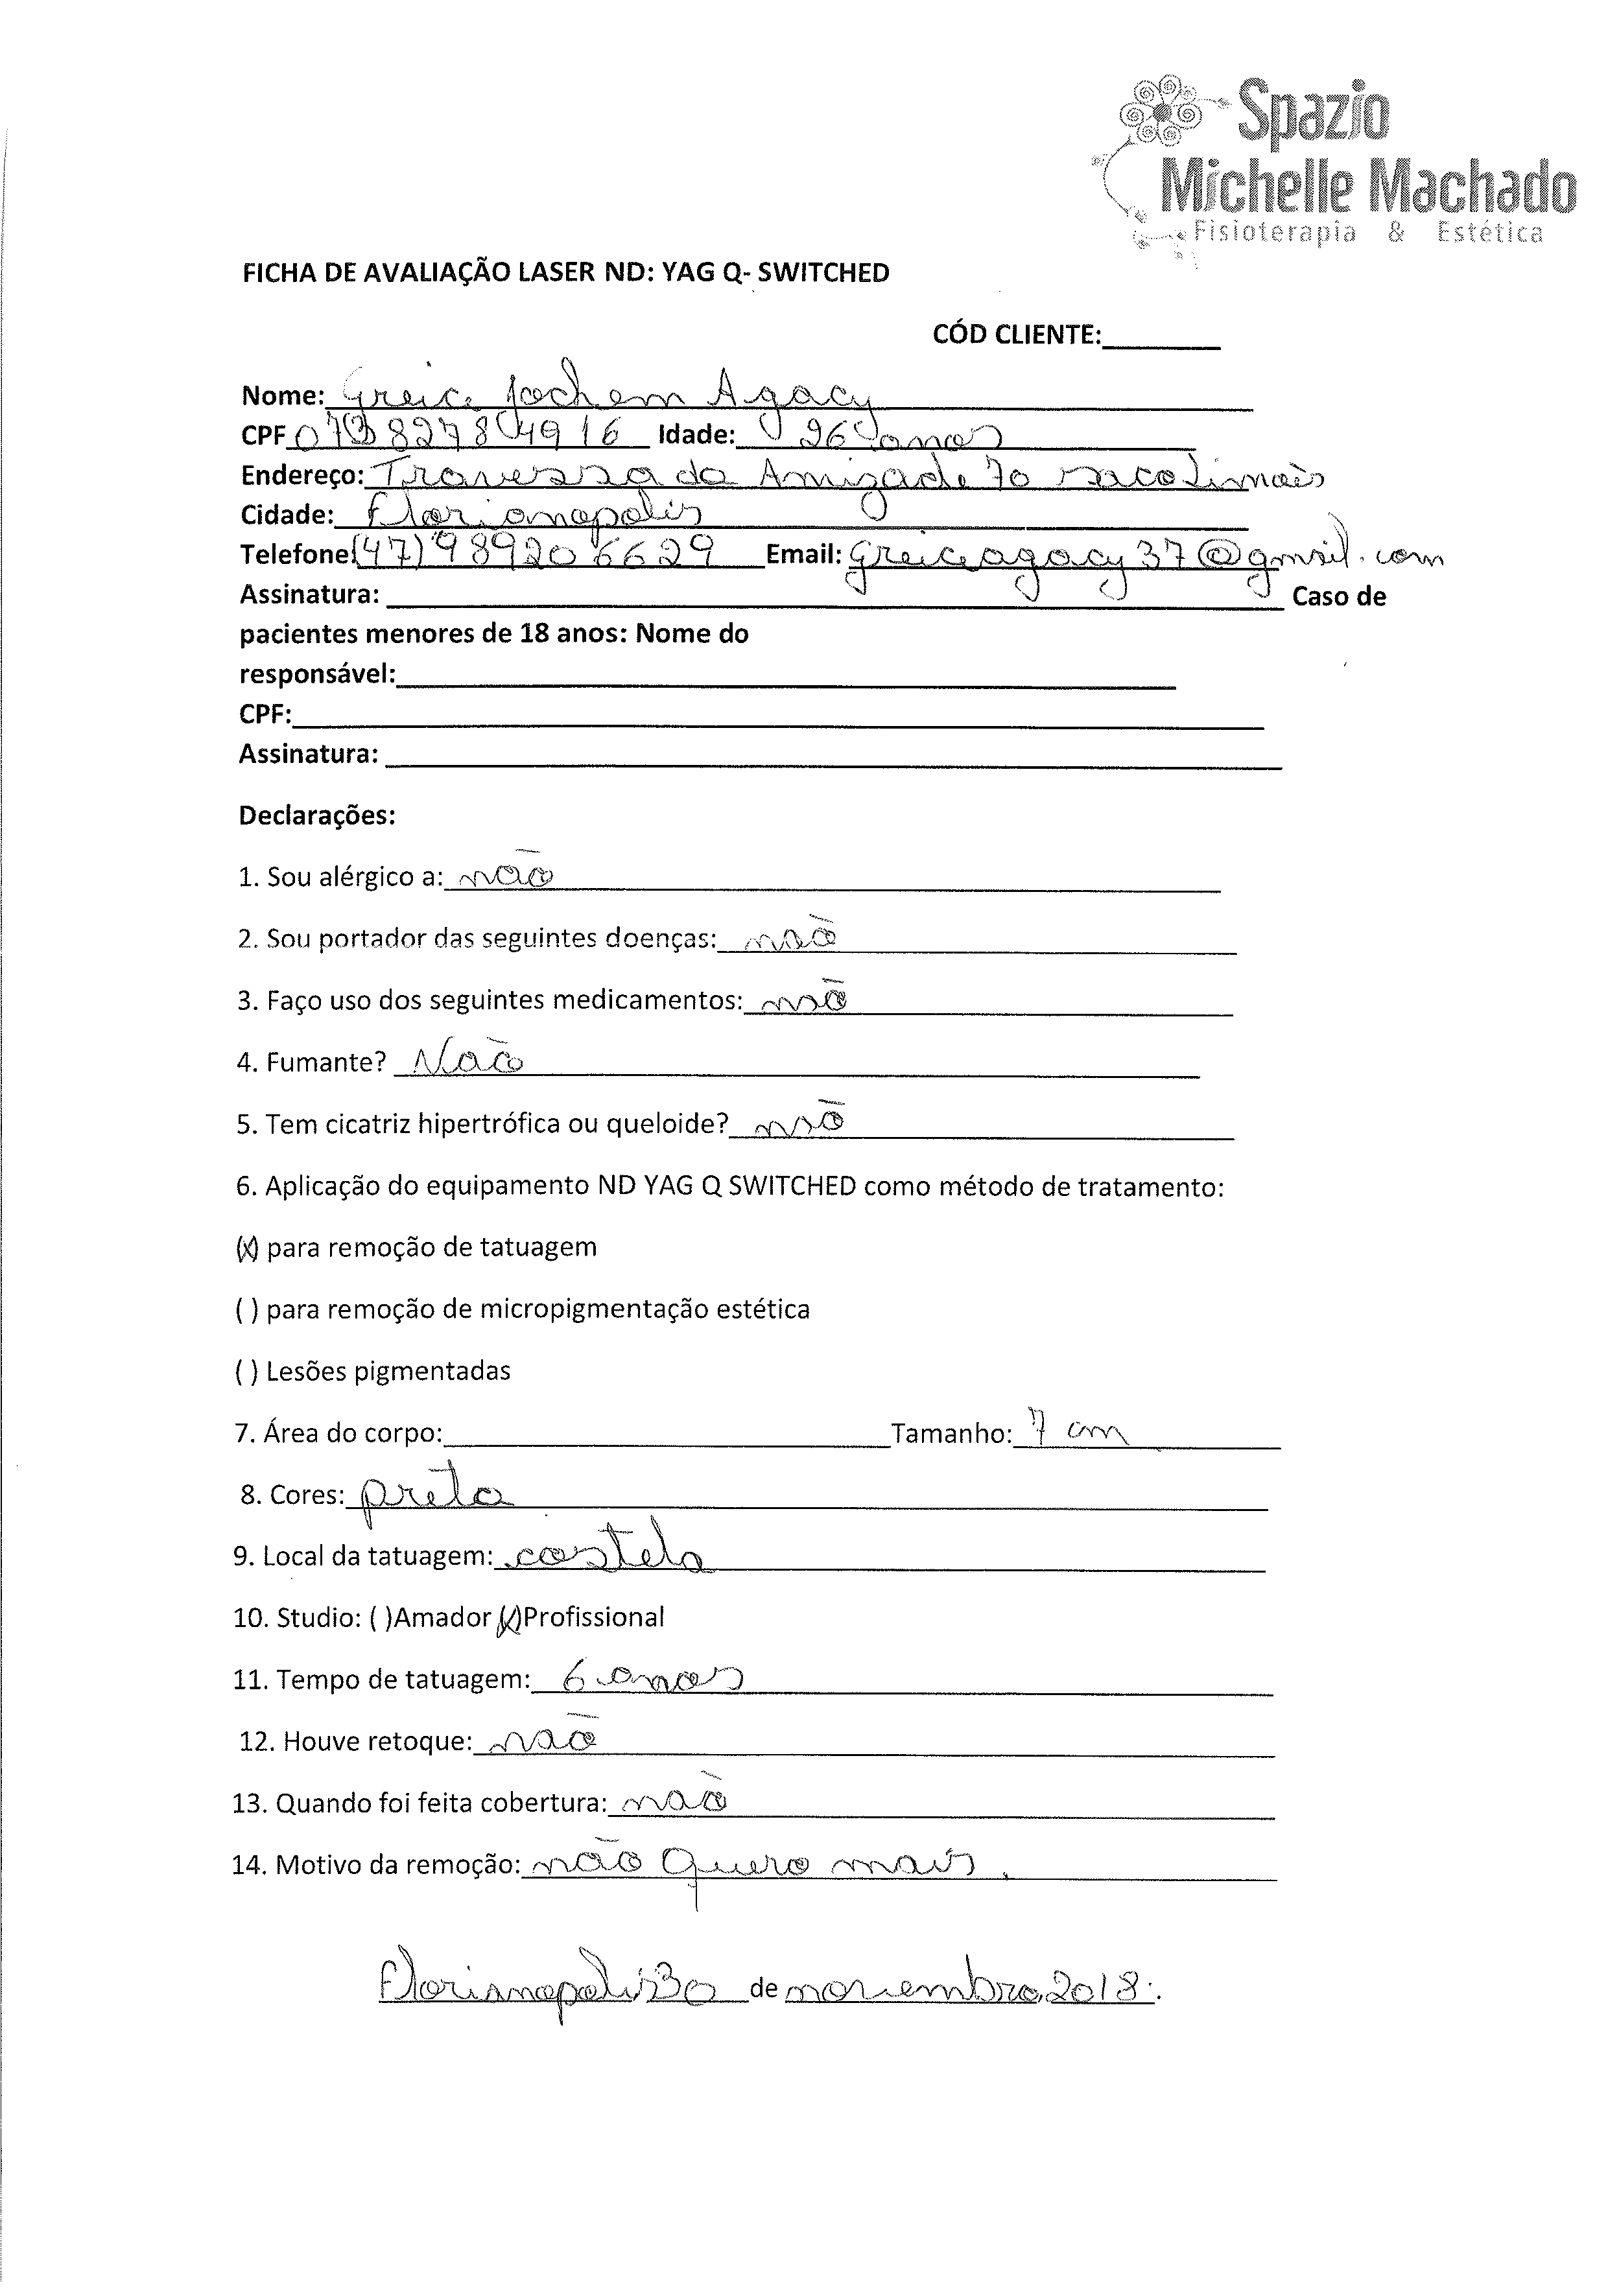 Spazio
Michelle Machado
Fisioterapia & Estética
FICHA DE AVALIAÇÃO LASER ND: YAG Q- SWITCHED
CÓD CLIENTE:
Nome: Greice Jochem Agacy
CPF Idade: 26 anos
Endereço: Travessa da Amizade 70 saco Limões
Cidade: Florianopolis
Telefone: (47) 989206629 Email: greiceagacy37@gmail.com
Assinatura: Caso de
pacientes menores de 18 anos: Nome do
responsável:
CPF:
Assinatura:
Declarações:
1. Sou alérgico a: não
2. Sou portador das seguintes doenças: não
3. Faço uso dos seguintes medicamentos: não
4. Fumante? Não
5. Tem cicatriz hipertrófica ou queloide? não
6. Aplicação do equipamento ND YAG Q SWITCHED como método de tratamento:
(x) para remoção de tatuagem
( ) para remoção de micropigmentação estética
( ) Lesões pigmentadas
7. Área do corpo: Tamanho: 7 cm
8. Cores: preta
9. Local da tatuagem: costela
10. Studio: ( )Amador (x)Profissional
11. Tempo de tatuagem: 6 anos
12. Houve retoque: não
13. Quando foi feita cobertura: não
14. Motivo da remoção: não quero mais.
Florianopolis 30 de novembro 2018.